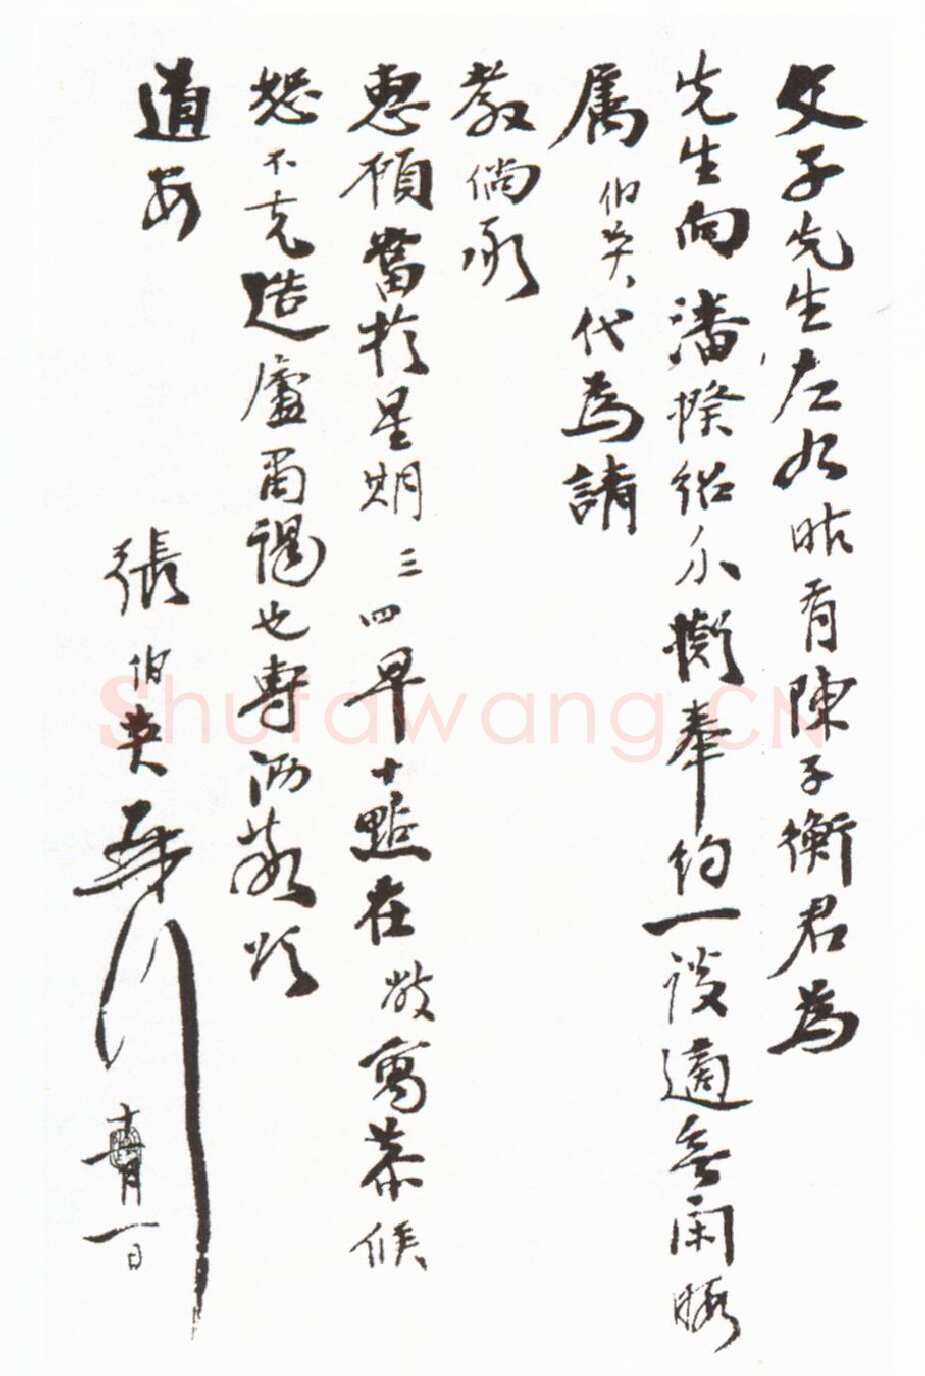 文子先生左右昨有陳子衡君為
先生向潘揆紹介擬奉約一談適無閑暇
属伯英代為請
教倘承
惠顧當於星期三四早十點在敝寓恭候
恕不克造廬面謁也専洒敬頌
道安
張伯英再行
十一月一日
Shufawang.CN